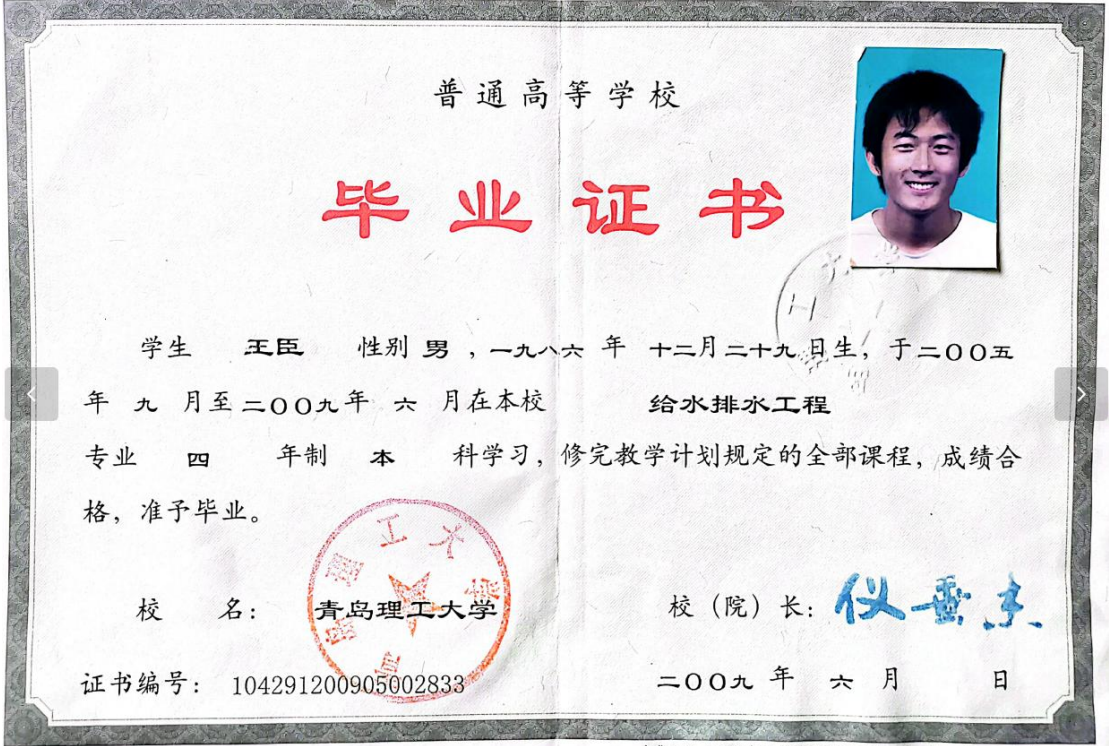 普通高等学校
毕业证书
学生 王臣 性别 男 ，一九八六 年 十二月二十九日生，于二〇〇五
年 九 月至二〇〇九年 六 月在本校 给水排水工程
专业 四 年制 本 科学习，修完教学计划规定的全部课程，成绩合
格，准予毕业。
校 名： 青岛理工大学
校（院）长：仪垂杰
证书编号： 104291200905002833
二〇〇九 年 六 月 日
青岛理工大学